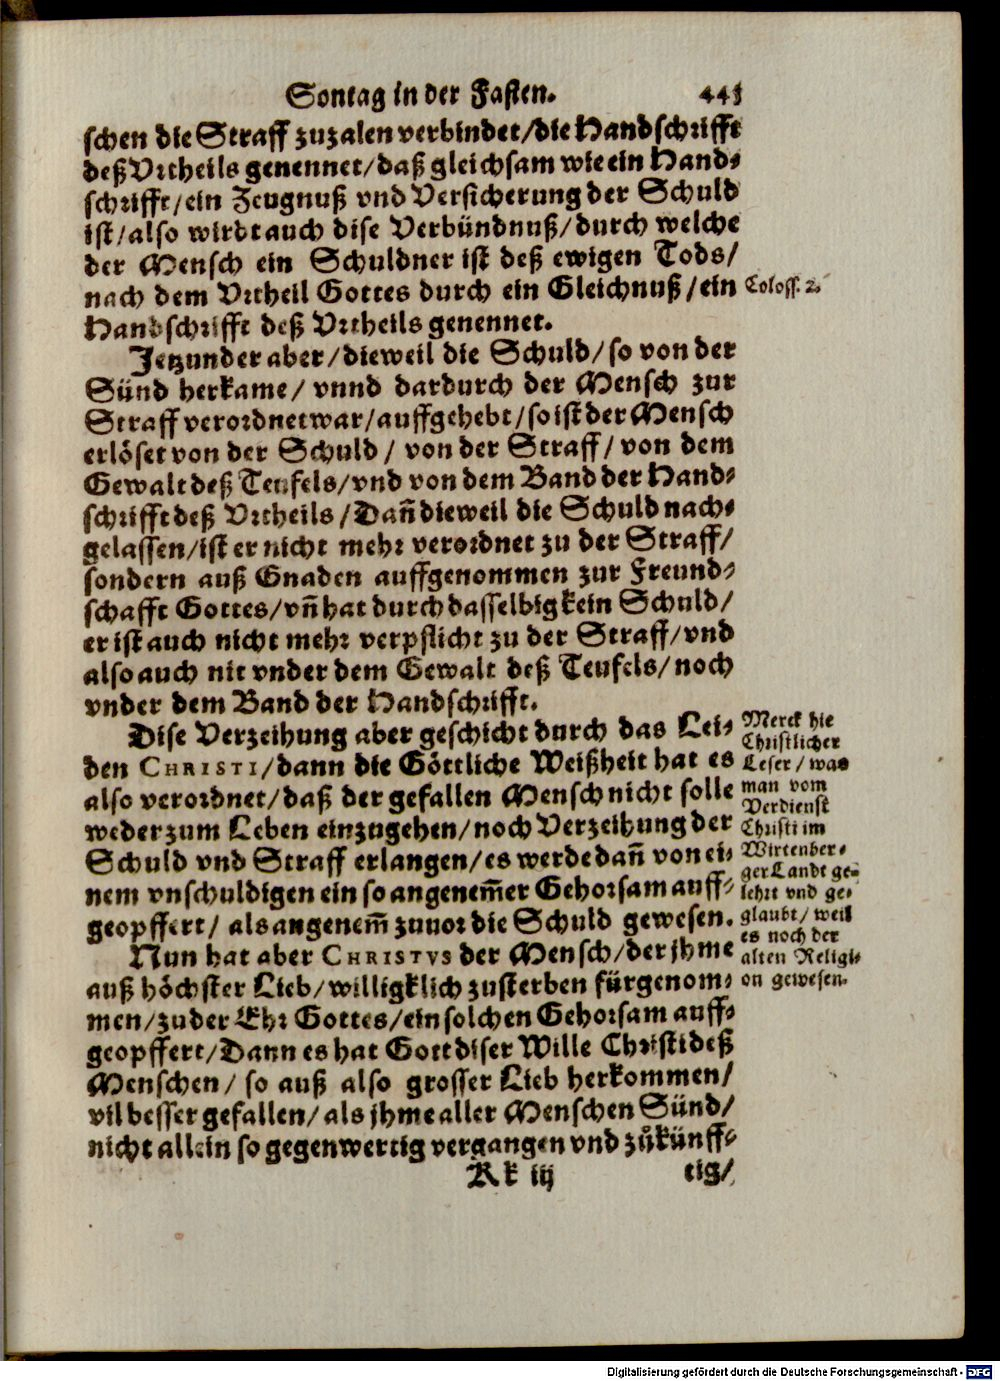 Sontag in der Fasten. 443
schen die Straff zuzalen verbindet/die Handschrifft
deß Vrtheils genennet/daß gleichsam wie ein Hand-
schrifft/ein Zeugnuß vnd Versicherung der Schuld
ist/also wirdt auch dise Verbündnuß/durch welche
der Mensch ein Schuldner ist deß ewigen Tods/
nach dem Vrtheil Gottes durch ein Gleichnuß/ein
Handschrifft deß Vrtheils genennet.
Coloss. 2.
Jetzunder aber/dieweil die Schuld/so von der
Sünd herkame/ vnnd dardurch der Mensch zur
Straff verordnet war/auffgehebt/so ist der Mensch
erlöset von der Schuld/ von der Straff/ von dem
Gewalt deß Teufels/vnd von dem Band der Hand-
schrifft deß Vrtheils/Dañ dieweil die Schuld nach-
gelassen/ist er nicht mehr verordnet zu der Straff/
sondern auß Gnaden auffgenommen zur Freund-
schafft Gottes/vñ hat durch dasselbig kein Schuld/
er ist auch nicht mehr verpflicht zu der Straff/vnd
also auch nit vnder dem Gewalt deß Teufels/noch
vnder dem Band der Handschrifft.
Dise Verzeihung aber geschicht durch das Lei-
den CHRISTI/dann die Göttliche Weißheit hat es
also verordnet/daß der gefallen Mensch nicht solle
weder zum Leben einzugehen/noch Verzeihung der
Schuld vnd Straff erlangen/es werde dañ von ei-
nem vnschuldigen ein so angenem̃er Gehorsam auff-
geopffert/ als angenem̃ zuuor die Schuld gewesen.
Merck hie
Christlicher
Leser/was
man vom
Verdienst
Christi im
Wirtenber-
ger Landt ge-
lehrt vnd ge-
glaubt/ weil
es noch der
alten Religi-
on gewesen.
Nun hat aber CHRISTVS der Mensch/der jhme
auß höchster Lieb/willigklich zusterben fürgenom-
men/zu der Ehr Gottes/ein solchen Gehorsam auff-
geopffert/Dann es hat Gott diser Wille Christi deß
Menschen/ so auß also grosser Lieb herkommen/
vil besser gefallen/als jhme aller Menschen Sünd/
nicht allein so gegenwertig vergangen vnd zůkünff-
Kk iij tig/
Digitalisierung gefördert durch die Deutsche Forschungsgemeinschaft - DFG